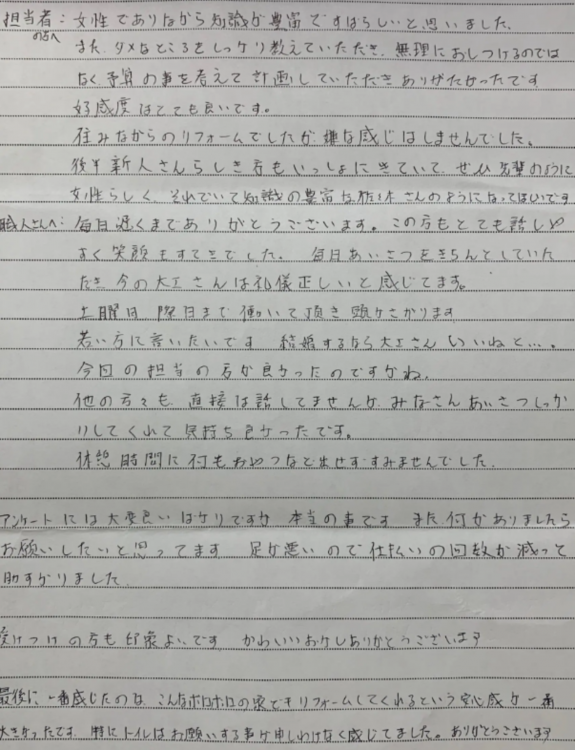 担当者:女性でありながら知識が豊富ですばらしいと思いました。
の方へ
また、ダメなところをしっかり教えていただき、無理におしつけるのでは
なく予算の事を考えて計画していただきありがたかったです
好感度はとても良いです。
住みながらのリフォームでしたが嫌な感じはしませんでした。
後半新人さんらしき方もいっしょにきていて、ぜひ先輩のように
女性らしく、それでいて知識の豊富な さんのようになってほしいです
職人さんへ:毎日遅くまでありがとうございます。この方もとても話しや
すく笑顔もすてきでした。 毎日あいさつをきちんとしていた
だき今の大工さんは礼儀正しいと感じてます。
土曜日 際日まで働いて頂き頭がさがります
若い方に言いたいです 結婚するなら大工さんいいねと…。
今回の担当の方が良かったのですかね。
他の方々も直接は話してませんが、みなさんあいさつしっか
りしてくれて気持ち良かったです。
休憩時間に何もおやつなど出せずすみませんでした。
アンケートには大変良いばかりですが 本当の事です また何かありましたら
お願いしたいと思ってます 足が悪いので仕払いの回数が減って
助すかりました
受けつけの方も印象よいです かわいいおかしありがとうございます
最後に一番感じたのは、こんなボロボロの家でもリフォームしてくれるという安心感が一番
大きかったです。特にトイレはお願いする事が申しわけなく感じてました。ありがとうございます